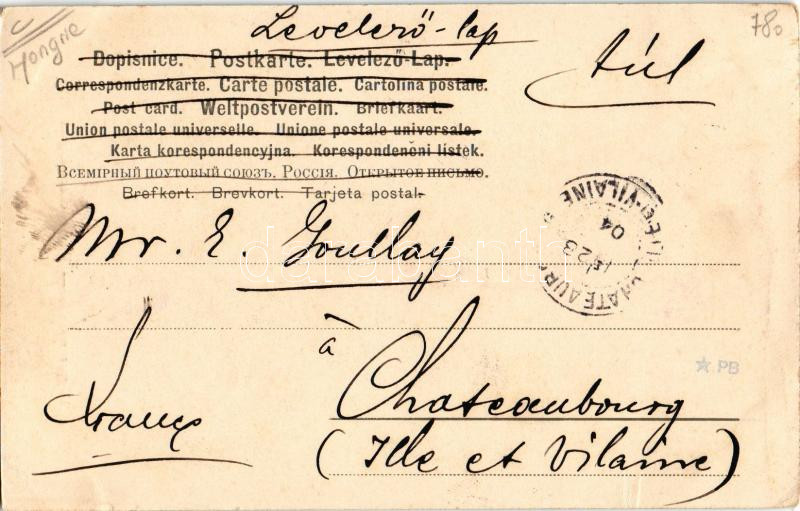 Levelező-lap
780
Hongrie
túl
Dopisnice. Postkarte. Levelező-Lap.
Correspondenzkarte. Carte postale. Cartolina postale.
Post card. Weltpostverein. Briefkaart.
Union postale universelle. Unione postale universale.
Karta korespondencyjna. Korespondenčni listek.
Всемірный почтовый союзъ. Россія. Открытое письмо.
Brefkort. Brevkort. Tarjeta postal.
VILAINE
04
23
Mr. E. Goullay
darabanth
à
PB
France
Chateaubourg
(Ille et Vilaine)